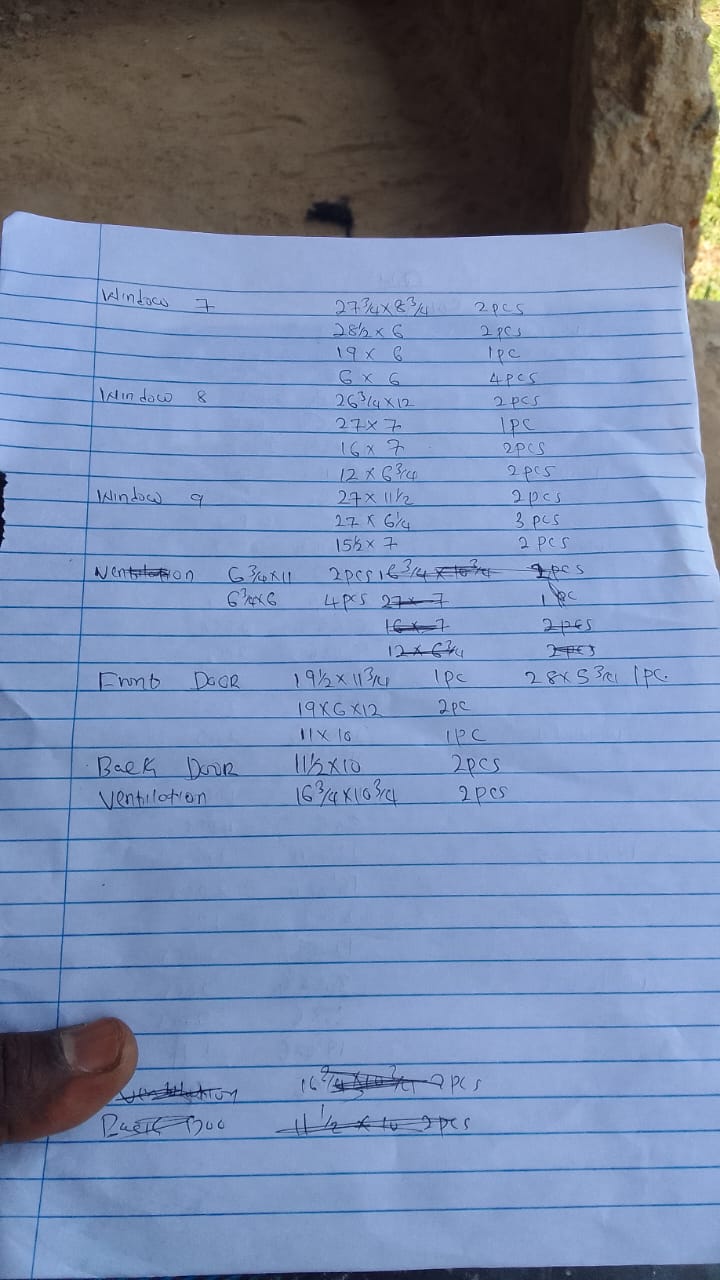 Window 7 27 3/4 x 8 3/4 2pcs
28 1/2 x 6 2pcs
19 x 6 1pc
6 x 6 4pcs
Window 8 26 3/4 x 12 2pcs
27 x 7 1pc
16 x 7 2pcs
12 x 6 3/4 2pcs
Window 9 27 x 11 1/2 2pcs
27 x 6 1/4 3 pcs
15 1/2 x 7 2 pcs
Ventilation 6 3/4 x 11 2pcs 16 3/4 x 10 3/4 2pcs
6 3/4 x 6 4pcs 27 x 7 1pc
16 x 7 2pcs
12 x 6 3/4 2pcs
Front DOOR 19 1/2 x 11 3/4 1pc 28 x 5 3/4 1pc.
19 x 6 x 12 2pc
11 x 10 1pc
Back DOOR 11 1/2 x 10 2pcs
Ventilation 16 3/4 x 10 3/4 2pcs
Ventilation 16 3/4 x 10 3/4 2pcs
Back Doo 11 1/2 x 10 2pcs